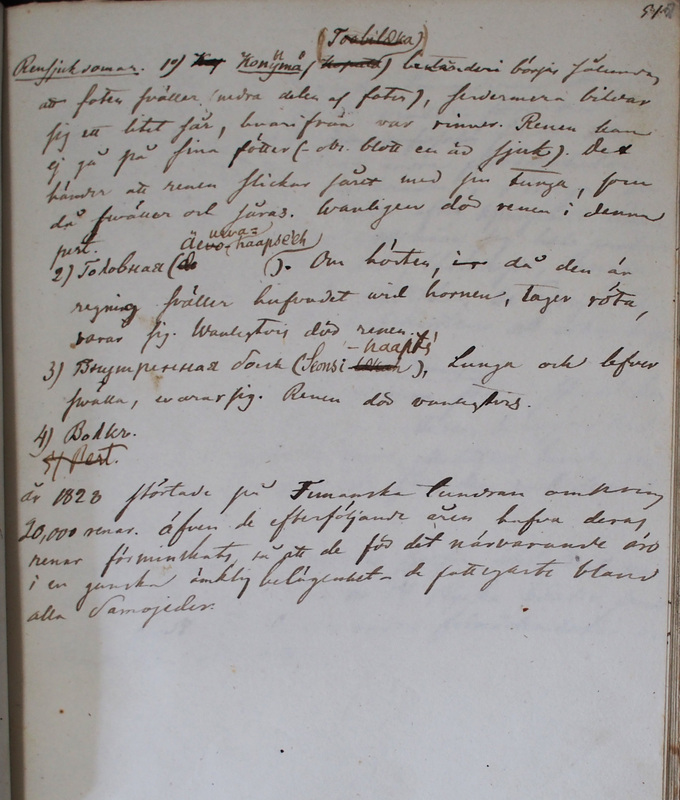 (Toobilæka)
Rensjukdomar. 1o) Konyma, (kopatk) bestånderi börjas sålunda,
att foten sväller (nedra delen af foten), sedermera bildar
sig ett litet sår, hvarifrån var rinner. Renen kan
ej gå på sina fötter (- obs. blott en äd sjuk). Det
händer att renen slickar såret med sin tunga, som
då swäller och såras. Wanligen död renen i denna
pest.
2) Головная (haapseeh). Om hösten, då den är
regnig sväller hufvudet wid hornen, tager röta,
varar sig. Wanligtvis död renen.
3) Внутренная боль (Seonsi - haaptsi), Lunga och lefver
swälla, warar sig. Renen död wanligtvis.
4) Волки.
5) Pest.
år 1828 störtade på Timanska tundran omkring
20,000 renar. äfven de efterföljande åren hafva deras
renar förminskats, så att de för det närvarande äro
i en ganska ömklig belägenhet - de fattigaste bland
alla Samojeder.